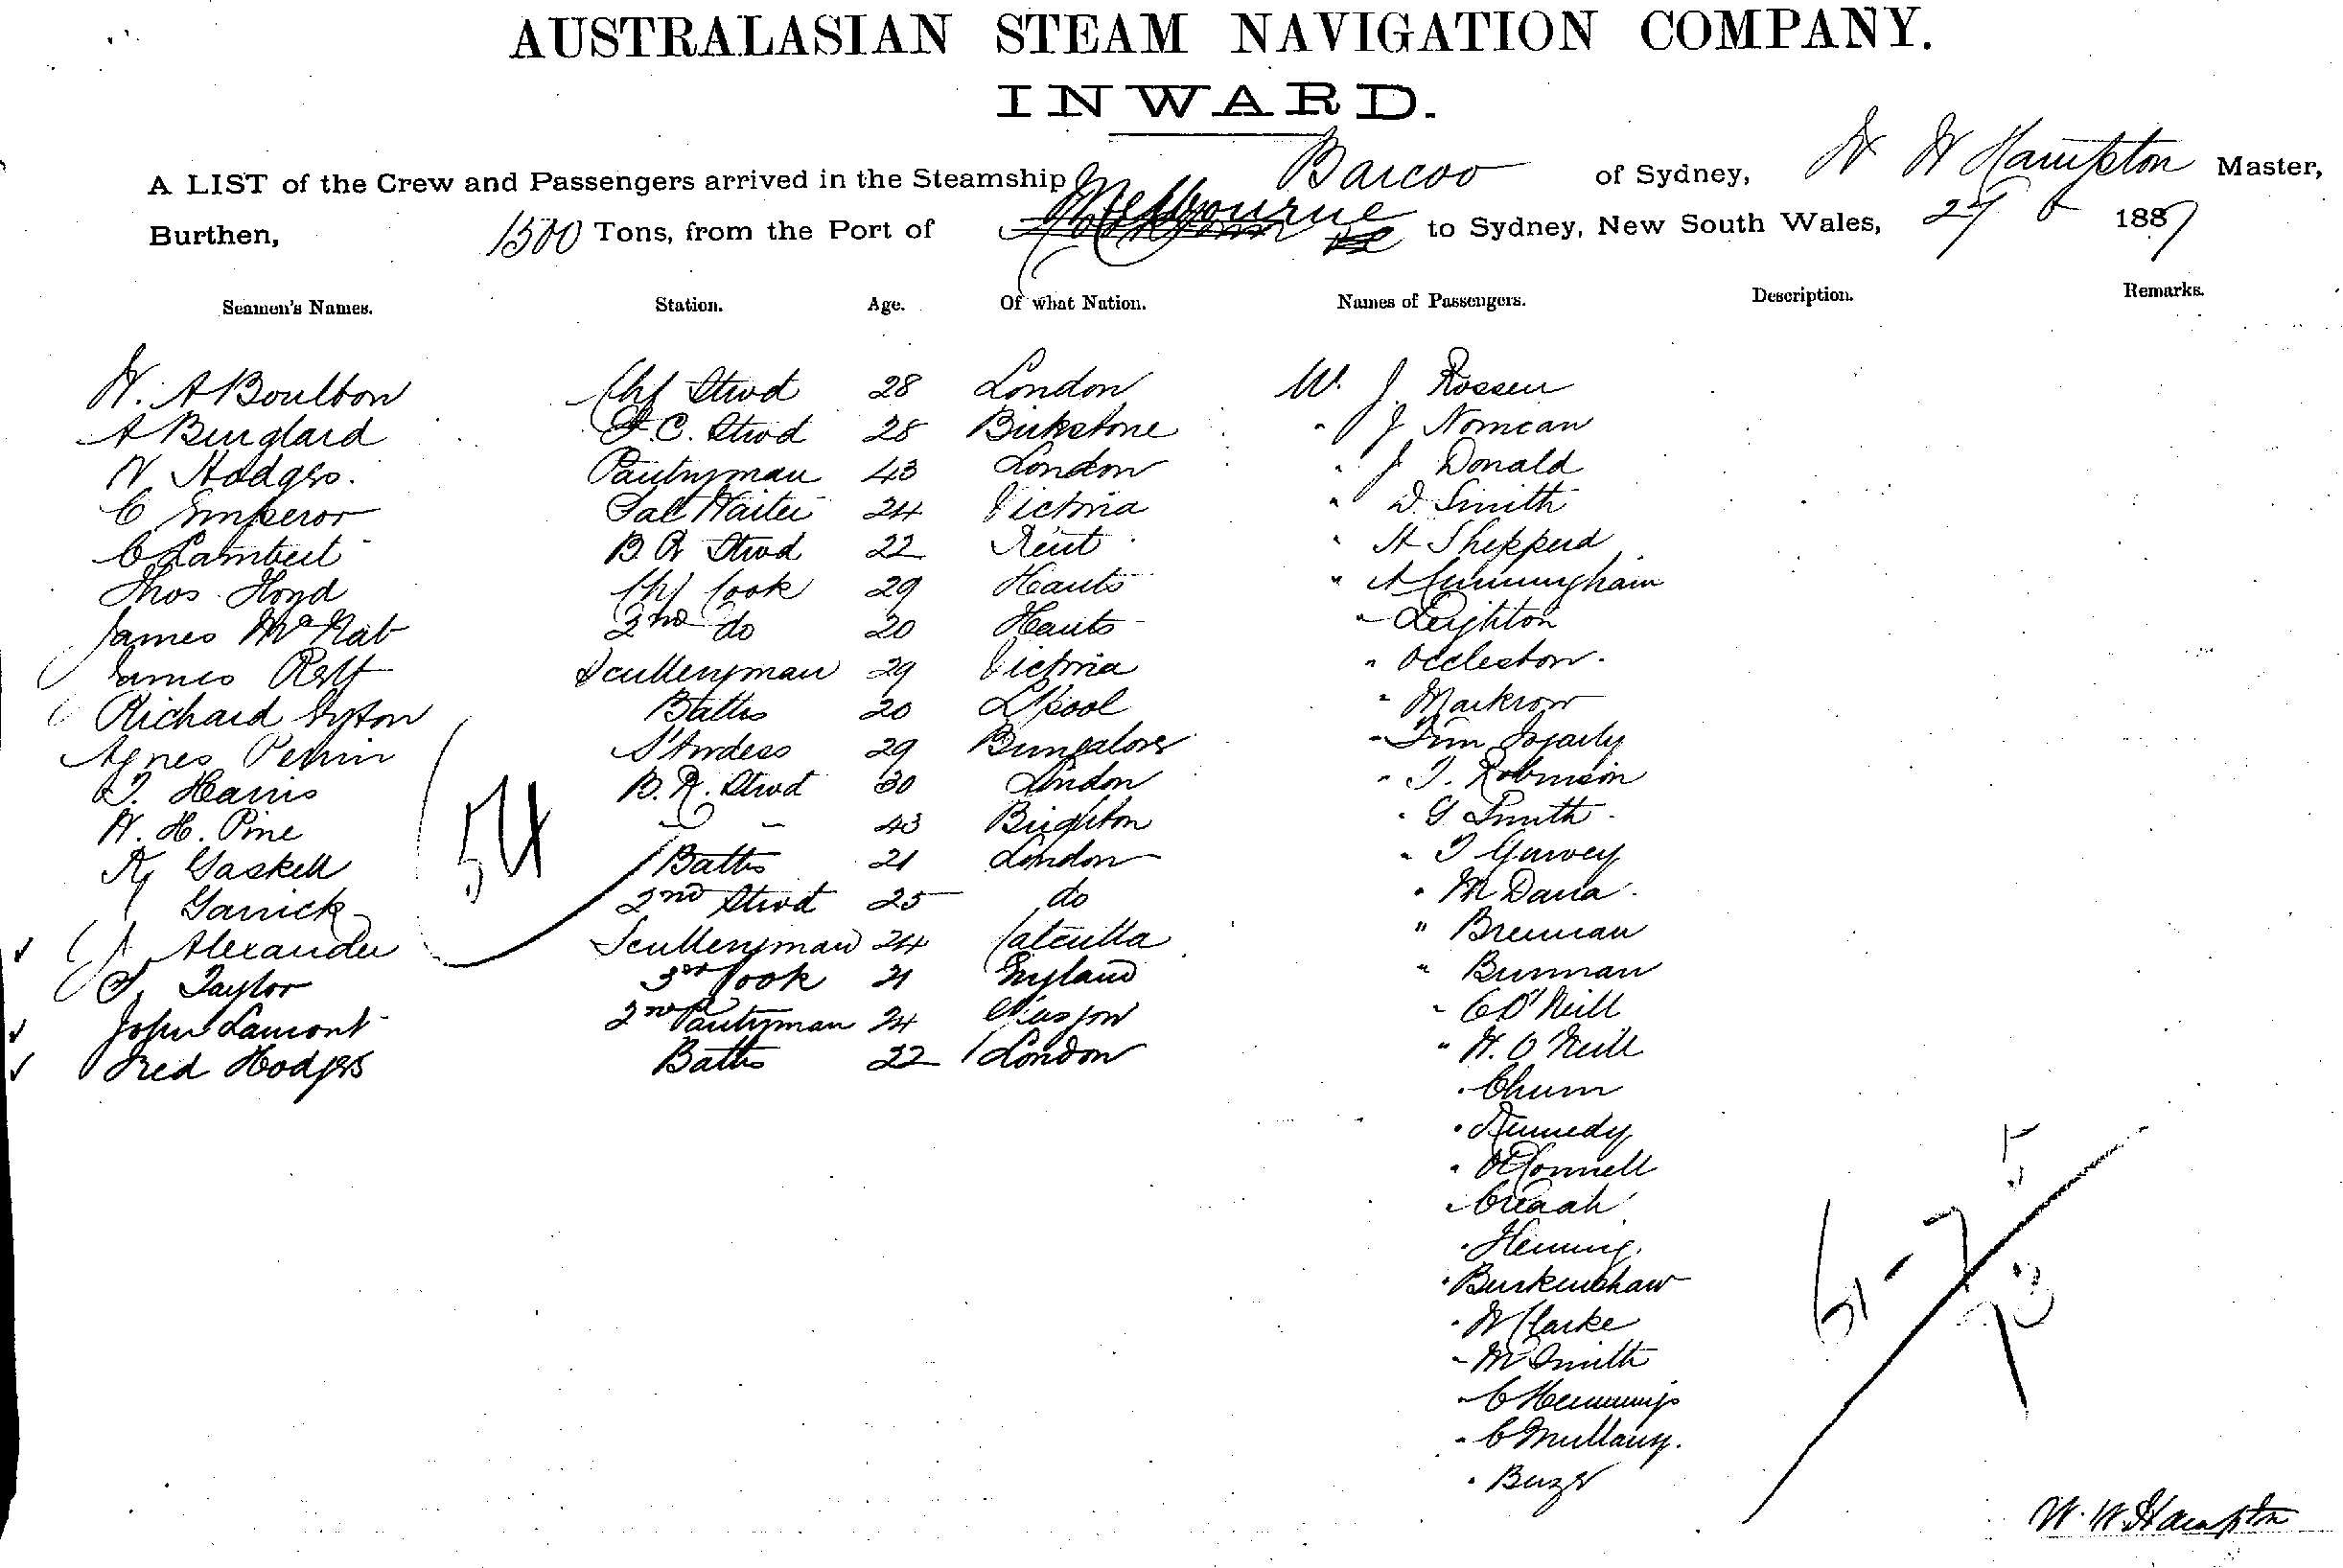 AUSTRALASIAN STEAM NAVIGATION COMPANY.
INWARD.
A LIST of the Crew and Passengers arrived in the Steamship Barcoo of Sydney, W W Hampton Master,
Burthen, 1500 Tons, from the Port of Melbourne to Sydney, New South Wales, 27 6 1887
Seamen's Names. Station. Age. Of what Nation. Names of Passengers. Description. Remarks.
W. A Boulton Chf Stwd 28 London W. J. Rossen
A Burglard F.C. Stwd 28 Birkstone " J Nomean
W Hodges. Pantryman 43 London " J Donald
C Emperor Sal Waiter 24 Victoria " D. Smith
C Lambert B R Stwd 22 Kent " H Shepperd
Thos Floyd Chf Cook 29 Hants " A Cunningham
James McNab 2nd do 20 Hants " Leighton
James Sculleryman 29 Victoria " Eccleston.
Richard 20 L'pool " Markrow
Agnes Perrin S'ardess 29 Bungalore " Tim Fogarty
T. Harris B.R. Stwd 30 London " T. Robinson
W. H. Pine " - 43 Brighton " G Smith
Gaskell 21 London " T Garvey
Garrick 2nd Stwd 25 do " M Dana
Alexander Sculleryman 24 Calcutta " Brennan
S. Taylor 3rd Cook 21 England " Burman
John Lamont 2nd Pantryman 24 Glasgow " C O'Neill
Fred Hodges 22 London " W. O'Neill
54
" Chum
" Kennedy
" O'Connell
" Creaah
" Fleming.
" Burkenshaw
" W Clarke
" M Smith
" C Hemmings
" C Mullany.
W. W. Hampton